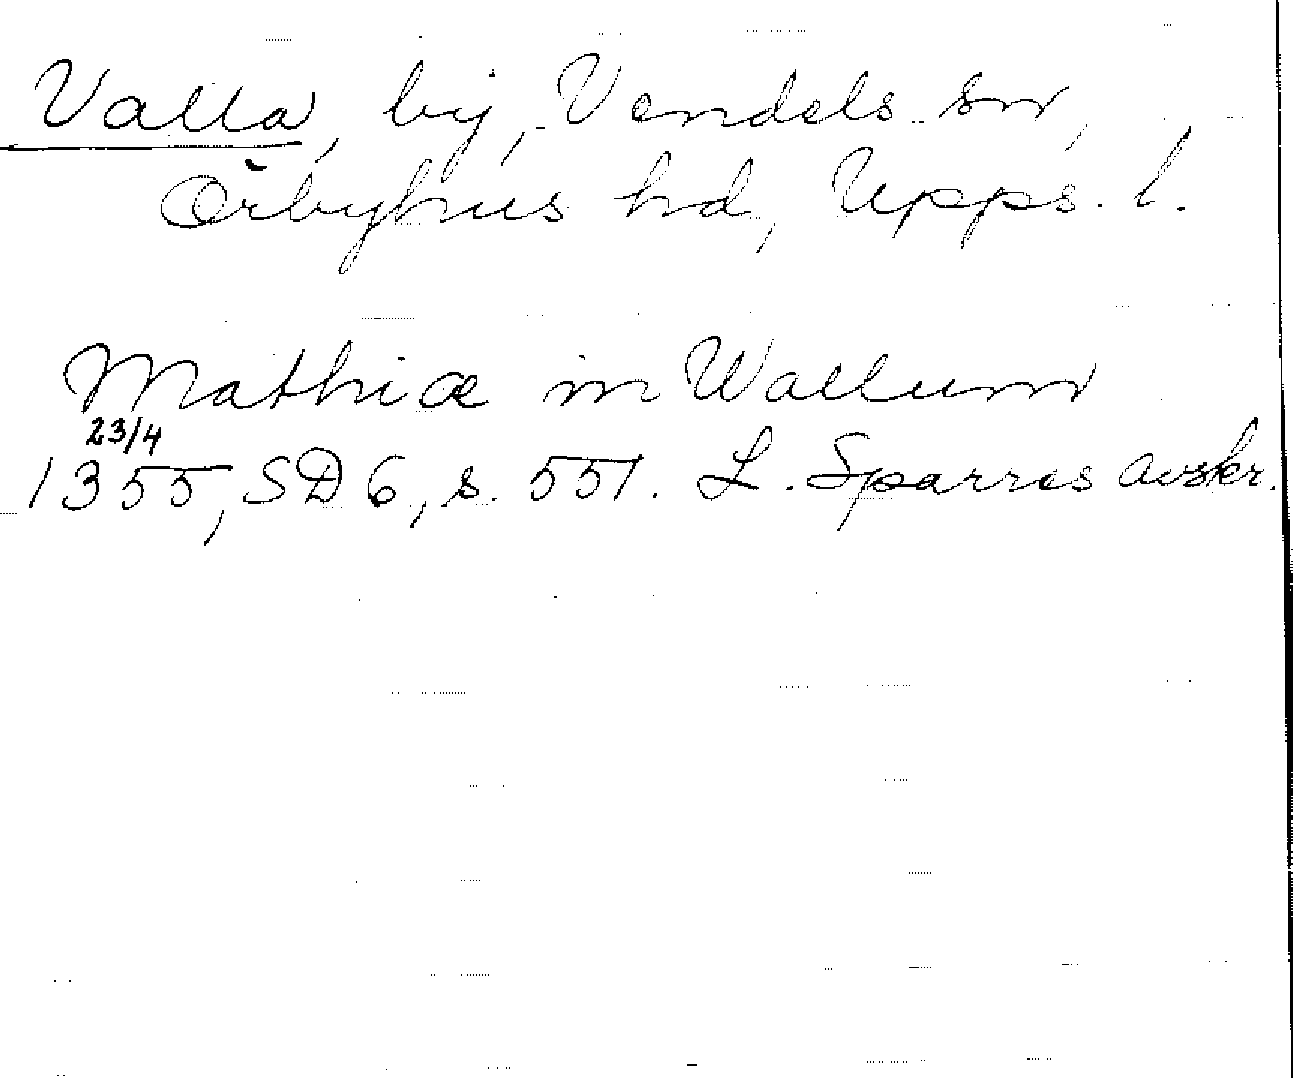 Valla, by, Vendels sn,
Örbyhus hd, Upps. l.
Mathiæ in Wallum
23/4
1355, SD 6, s. 551. L. Sparres avskr.